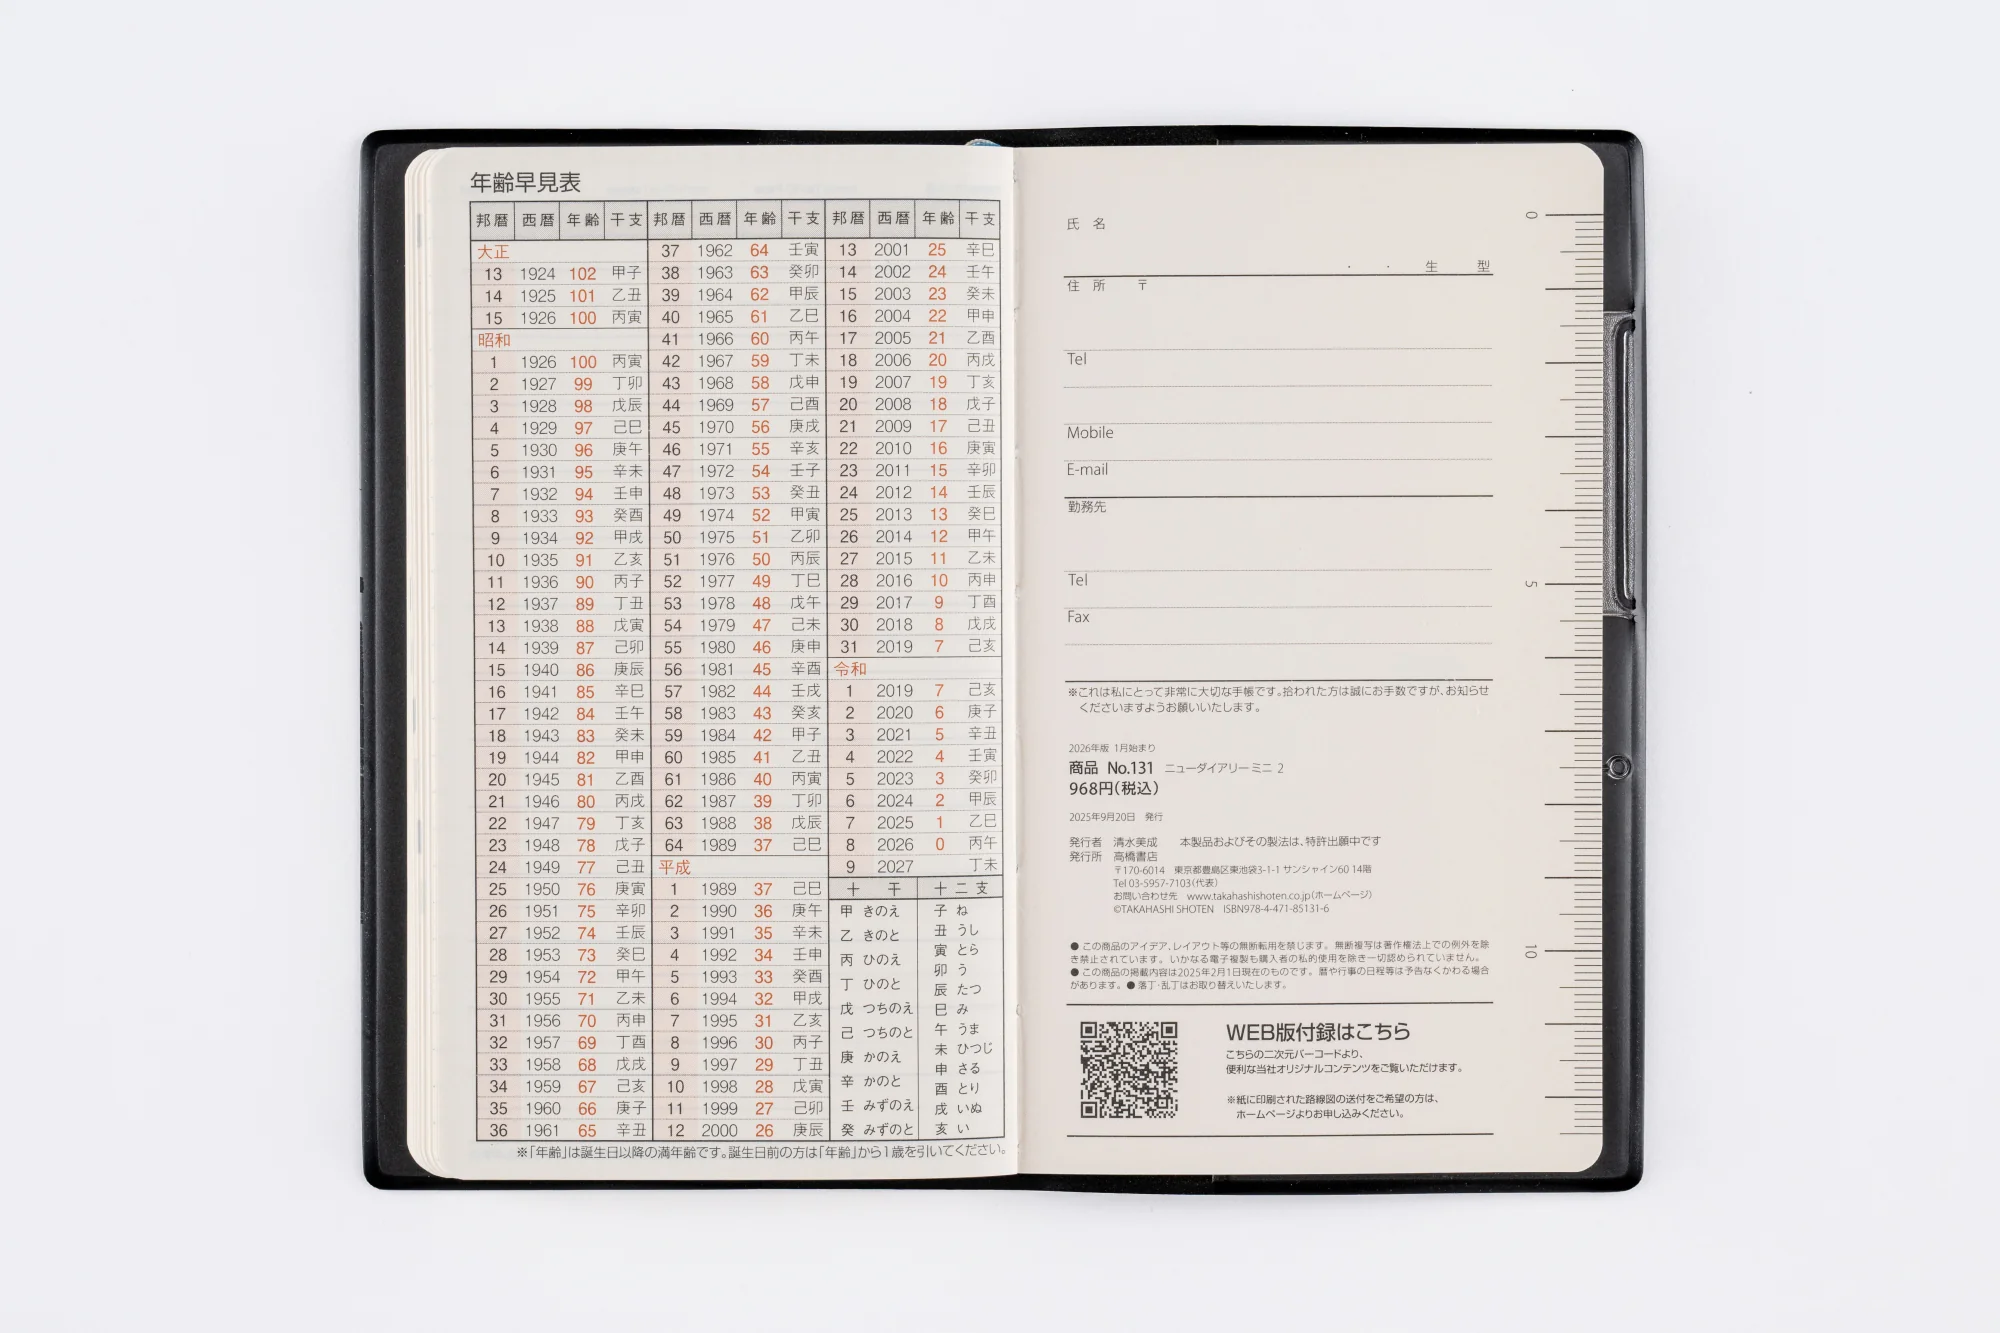 年齢早見表
邦暦 西暦 年齢 干支 邦暦 西暦 年齢 干支 邦暦 西暦 年齢 干支
大正
13 1924 102 甲子
14 1925 101 乙丑
15 1926 100 丙寅
昭和
1 1926 100 丙寅
2 1927 99 丁卯
3 1928 98 戊辰
4 1929 97 己巳
5 1930 96 庚午
6 1931 95 辛未
7 1932 94 壬申
8 1933 93 癸酉
9 1934 92 甲戌
10 1935 91 乙亥
11 1936 90 丙子
12 1937 89 丁丑
13 1938 88 戊寅
14 1939 87 己卯
15 1940 86 庚辰
16 1941 85 辛巳
17 1942 84 壬午
18 1943 83 癸未
19 1944 82 甲申
20 1945 81 乙酉
21 1946 80 丙戌
22 1947 79 丁亥
23 1948 78 戊子
24 1949 77 己丑
25 1950 76 庚寅
26 1951 75 辛卯
27 1952 74 壬辰
28 1953 73 癸巳
29 1954 72 甲午
30 1955 71 乙未
31 1956 70 丙申
32 1957 69 丁酉
33 1958 68 戊戌
34 1959 67 己亥
35 1960 66 庚子
36 1961 65 辛丑
37 1962 64 壬寅
38 1963 63 癸卯
39 1964 62 甲辰
40 1965 61 乙巳
41 1966 60 丙午
42 1967 59 丁未
43 1968 58 戊申
44 1969 57 己酉
45 1970 56 庚戌
46 1971 55 辛亥
47 1972 54 壬子
48 1973 53 癸丑
49 1974 52 甲寅
50 1975 51 乙卯
51 1976 50 丙辰
52 1977 49 丁巳
53 1978 48 戊午
54 1979 47 己未
55 1980 46 庚申
56 1981 45 辛酉
57 1982 44 壬戌
58 1983 43 癸亥
59 1984 42 甲子
60 1985 41 乙丑
61 1986 40 丙寅
62 1987 39 丁卯
63 1988 38 戊辰
64 1989 37 己巳
平成
1 1989 37 己巳
2 1990 36 庚午
3 1991 35 辛未
4 1992 34 壬申
5 1993 33 癸酉
6 1994 32 甲戌
7 1995 31 乙亥
8 1996 30 丙子
9 1997 29 丁丑
10 1998 28 戊寅
11 1999 27 己卯
12 2000 26 庚辰
13 2001 25 辛巳
14 2002 24 壬午
15 2003 23 癸未
16 2004 22 甲申
17 2005 21 乙酉
18 2006 20 丙戌
19 2007 19 丁亥
20 2008 18 戊子
21 2009 17 己丑
22 2010 16 庚寅
23 2011 15 辛卯
24 2012 14 壬辰
25 2013 13 癸巳
26 2014 12 甲午
27 2015 11 乙未
28 2016 10 丙申
29 2017 9 丁酉
30 2018 8 戊戌
31 2019 7 己亥
令和
1 2019 7 己亥
2 2020 6 庚子
3 2021 5 辛丑
4 2022 4 壬寅
5 2023 3 癸卯
6 2024 2 甲辰
7 2025 1 乙巳
8 2026 0 丙午
9 2027 丁未
十干
甲 きのえ
乙 きのと
丙 ひのえ
丁 ひのと
戊 つちのえ
己 つちのと
庚 かのえ
辛 かのと
壬 みずのえ
癸 みずのと
十二支
子 ね
丑 うし
寅 とら
卯 う
辰 たつ
巳 み
午 うま
未 ひつじ
申 さる
酉 とり
戌 いぬ
亥 い
※「年齢」は誕生日以降の満年齢です。誕生日前の方は「年齢」から1歳を引いてください。
氏 名
・ ・ 生 型
住 所 〒
Tel
Mobile
E-mail
勤務先
Tel
Fax
※これは私にとって非常に大切な手帳です。拾われた方は誠にお手数ですが、お知らせ
くださいますようお願いいたします。
2026年版 1月始まり
商品 No.131 ニューダイアリーミニ 2
968円(税込)
2025年9月20日 発行
発行者 清水美成 本製品およびその製法は、特許出願中です
発行所 高橋書店
〒170-6014 東京都豊島区東池袋3-1-1 サンシャイン60 14階
Tel 03-5957-7103(代表)
お問い合わせ先 www.takahashishoten.co.jp(ホームページ)
©TAKAHASHI SHOTEN ISBN978-4-471-85131-6
● この商品のアイデア、レイアウト等の無断転用を禁じます。 無断複写は著作権法上での例外を除
き禁止されています。 いかなる電子複製も購入者の私的使用を除き一切認められていません。
● この商品の掲載内容は2025年2月1日現在のものです。 暦や行事の日程等は予告なくかわる場合
があります。 ● 落丁・乱丁はお取り替えいたします。
WEB版付録はこちら
こちらの二次元バーコードより、
便利な当社オリジナルコンテンツをご覧いただけます。
※紙に印刷された路線図の送付をご希望の方は、
ホームページよりお申し込みください。
0
5
10